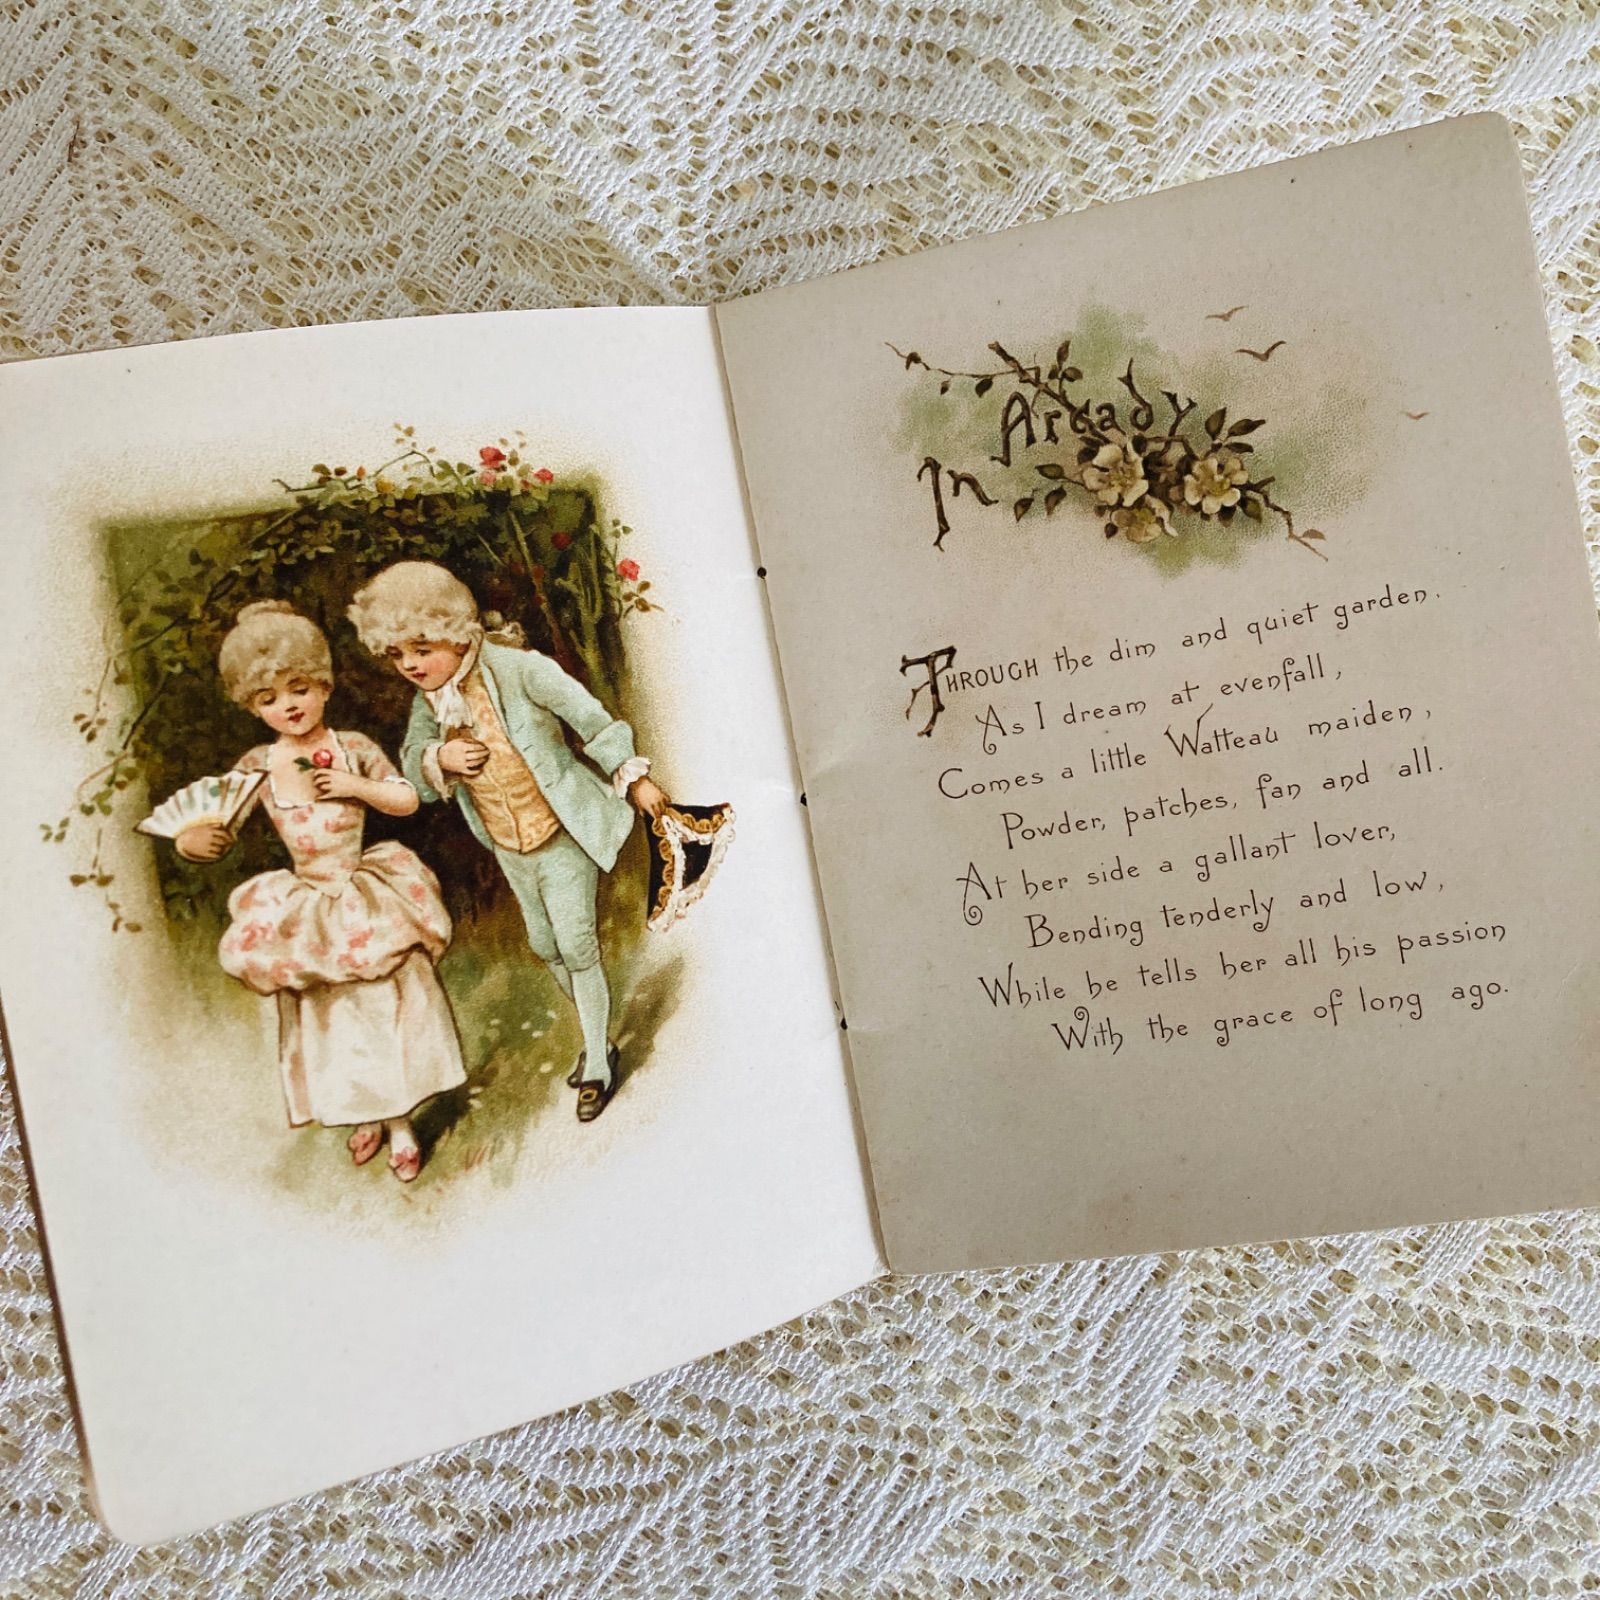 In Arcady
THROUGH the dim and quiet garden.
As I dream at evenfall,
Comes a little Watteau maiden,
Powder, patches, fan and all.
At her side a gallant lover,
Bending tenderly and low,
While he tells her all his passion
With the grace of long ago.